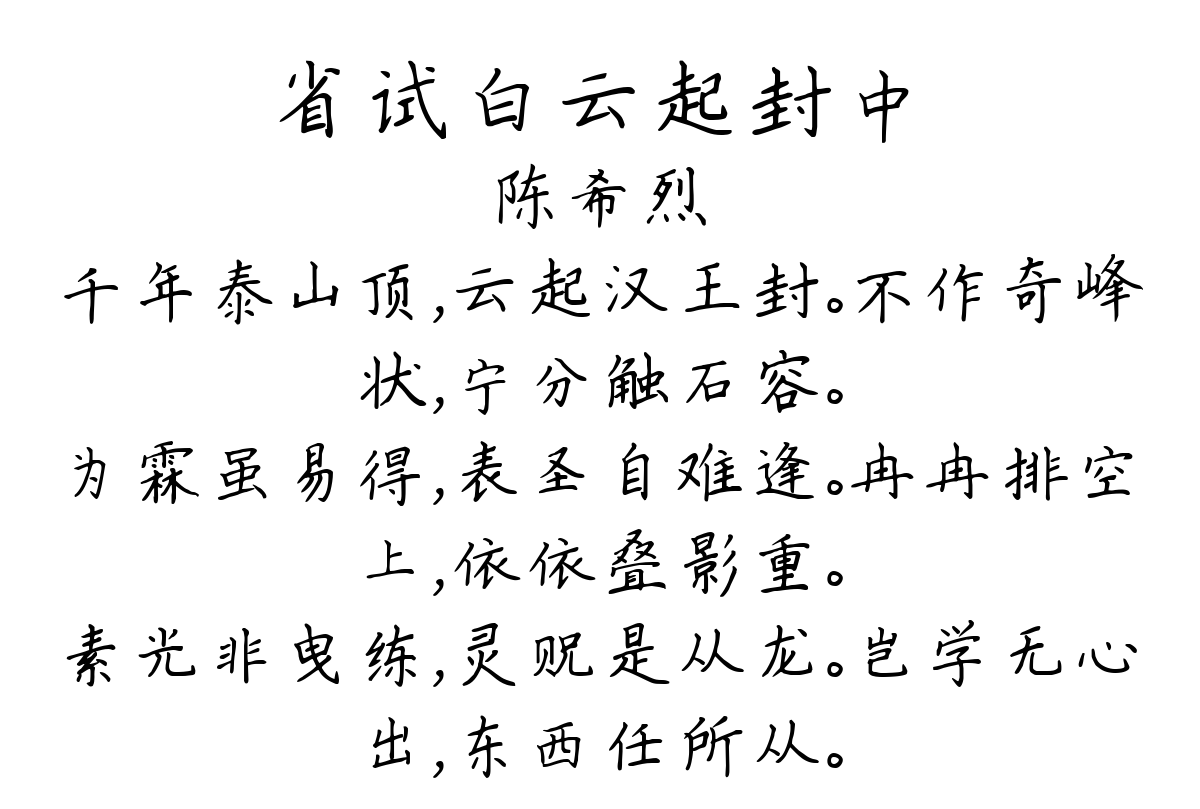 省试白云起封中
陈希烈
千年泰山顶,云起汉王封。不作奇峰
状,宁分触石容。
为霖虽易得,表圣自难逢。冉冉排空
上,依依叠影重。
素光非曳练,灵贶是从龙。岂学无心
出,东西任所从。